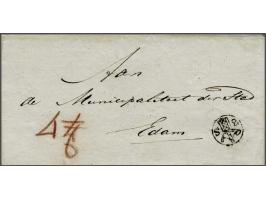 Aan
de Municipaliteit der Stad
Edam